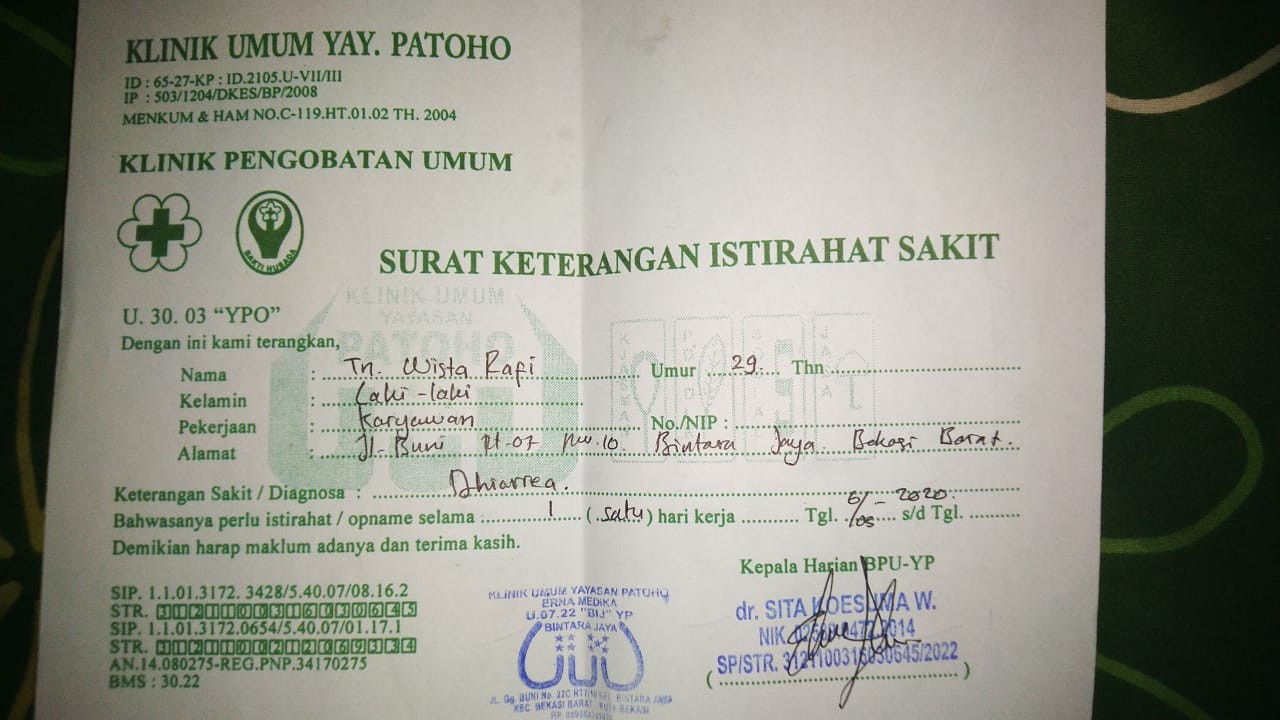 KLINIK UMUM YAY. PATOHO
ID : 65-27-KP : ID.2105.U-VII/III
IP : 503/1204/DKES/BP/2008
MENKUM & HAM NO.C-119.HT.01.02 TH. 2004
KLINIK PENGOBATAN UMUM
BAKTI HUSADA
SURAT KETERANGAN ISTIRAHAT SAKIT
KLINIK UMUM
YAYASAN
PATOHO
U. 30. 03 “YPO”
Dengan ini kami terangkan,
Nama : Tn. Wista Rafi Umur 29 Thn
Kelamin : Laki-laki
Pekerjaan : Karyawan No./NIP :
Alamat : Jl. Buni Rt.07 Rw.10. Bintara Jaya. Bekasi Barat.
Keterangan Sakit / Diagnosa : Dhiarrea.
Bahwasanya perlu istirahat / opname selama : 1 (satu) hari kerja Tgl. 6/05 - 2020. s/d Tgl.
Demikian harap maklum adanya dan terima kasih.
Kepala Harian BPU-YP
SIP. 1.1.01.3172. 3428/5.40.07/08.16.2
STR. 3121100316030645
SIP. 1.1.01.3172.0654/5.40.07/01.17.1
STR. 3121100212069334
AN.14.080275-REG.PNP.34170275
BMS : 30.22
KLINIK UMUM YAYASAN PATOHO
ERNA MEDIKA
U.07.22 "BIJ" YP
BINTARA JAYA
JL. Gg. BUNI No. 22C BINTARA JAYA
KEC. BEKASI BARAT KOTA BEKASI
dr. SITA KOESUMA W.
NIK
SP/STR. 3121100316030645/2022